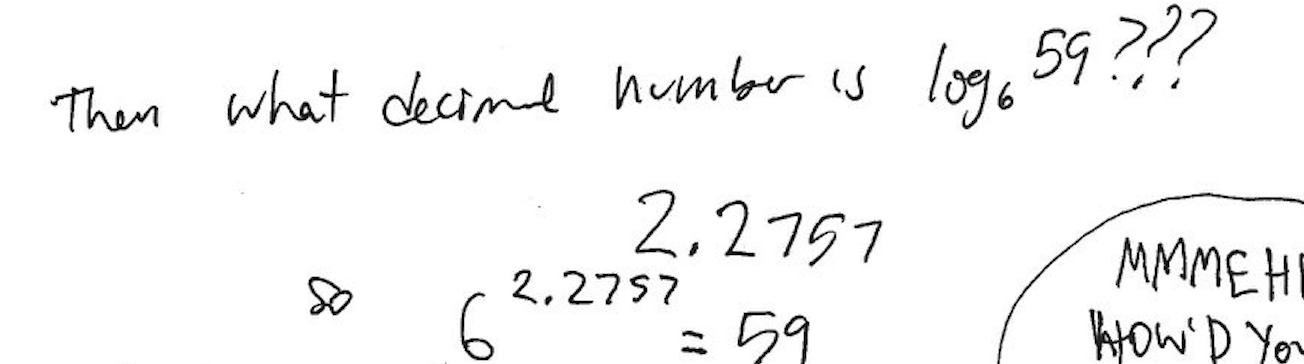 Then what decimal number is log₆ 59???
2.2757
so 6^2.2757 = 59
MMMEH
HOW'D YOU